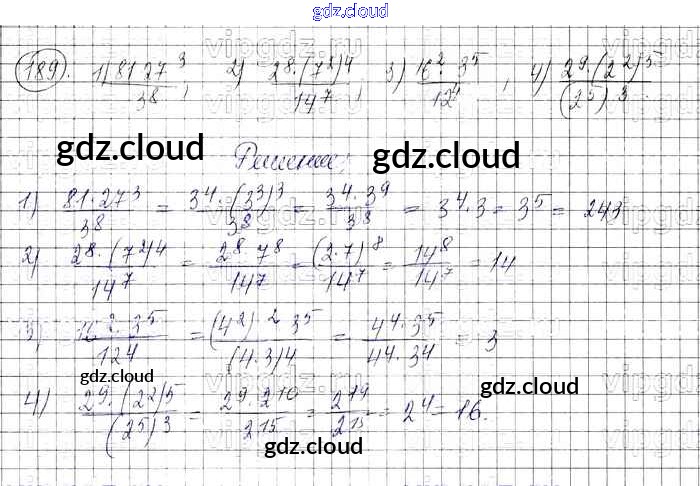 gdz.cloud
189). 1) 81·27³/3⁸; 2) 2⁸·(7²)⁴/14⁷; 3) 16²·3⁵/12⁴; 4) 2⁹·(2²)⁵/(2⁵)³.
gdz.cloud Решение: gdz.cloud
1) 81·27³/3⁸ = 3⁴·(3³)³/3⁸ = 3⁴·3⁹/3⁸ = 3⁴·3 = 3⁵ = 243
2) 2⁸·(7²)⁴/14⁷ = 2⁸·7⁸/14⁷ = (2·7)⁸/14⁷ = 14⁸/14⁷ = 14
3) 16²·3⁵/12⁴ = (4²)²·3⁵/(4·3)⁴ = 4⁴·3⁵/4⁴·3⁴ = 3
gdz.cloud gdz.cloud
4) 2⁹·(2²)⁵/(2⁵)³ = 2⁹·2¹⁰/2¹⁵ = 2¹⁹/2¹⁵ = 2⁴ = 16.
gdz.cloud